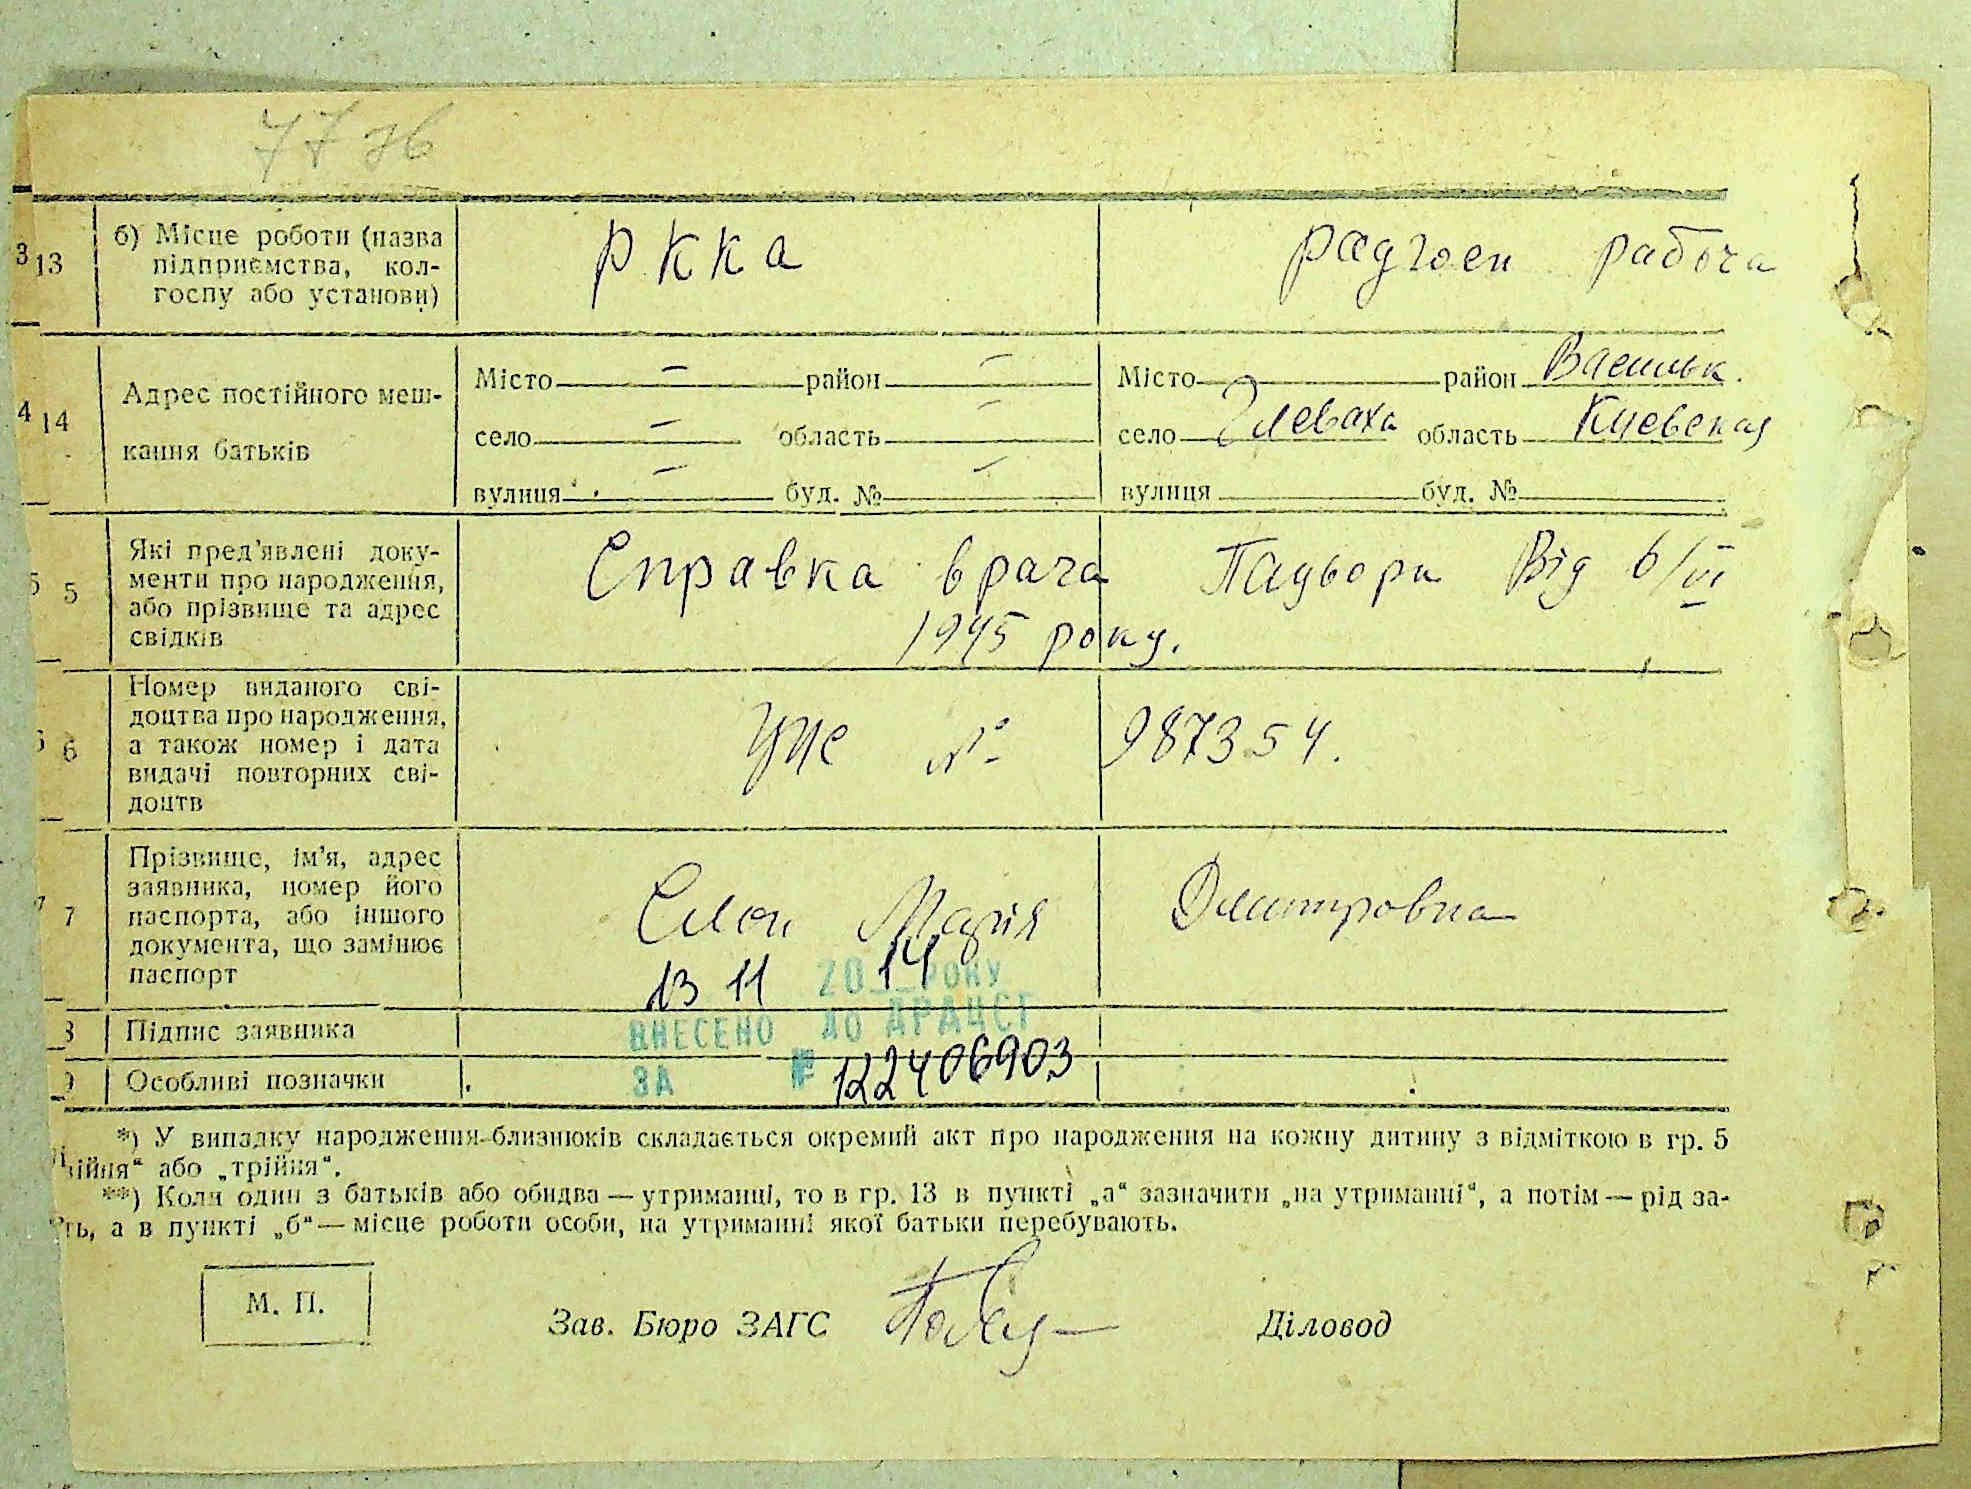 77 зв
3 13 б) Місце роботи (назва підприємства, колгоспу або установи) РККА радгосп рабоча
4 14 Адрес постійного мешкання батьків
Місто — район — Місто район Васильк.
село — область — село Глеваха область Киевская
вулиця — буд. № — вулиця буд. №
5 5 Які пред'явлені документи про народження, або прізвище та адрес свідків
Справка врача від 6/VI
1945 року.
6 6 Номер виданого свідоцтва про народження, а також номер і дата видачі повторних свідоцтв
№ 987354.
7 7 Прізвище, ім'я, адрес заявника, номер його паспорта, або іншого документа, що замінює паспорт
Марія Дмитровна
13 11 2014 РОКУ
8 Підпис заявника
ВНЕСЕНО ДО ДРАЦСГ
9 Особливі позначки
ЗА № 122406903
*) У випадку народження близнюків складається окремий акт про народження на кожну дитину з відміткою в гр. 5
ійня" або „трійня".
**) Коли один з батьків або обидва — утриманці, то в гр. 13 в пункті „а" зазначити „на утриманні", а потім — рід за-
ть, а в пункті „б" — місце роботи особи, на утриманні якої батьки перебувають.
М. П.
Зав. Бюро ЗАГС
Діловод